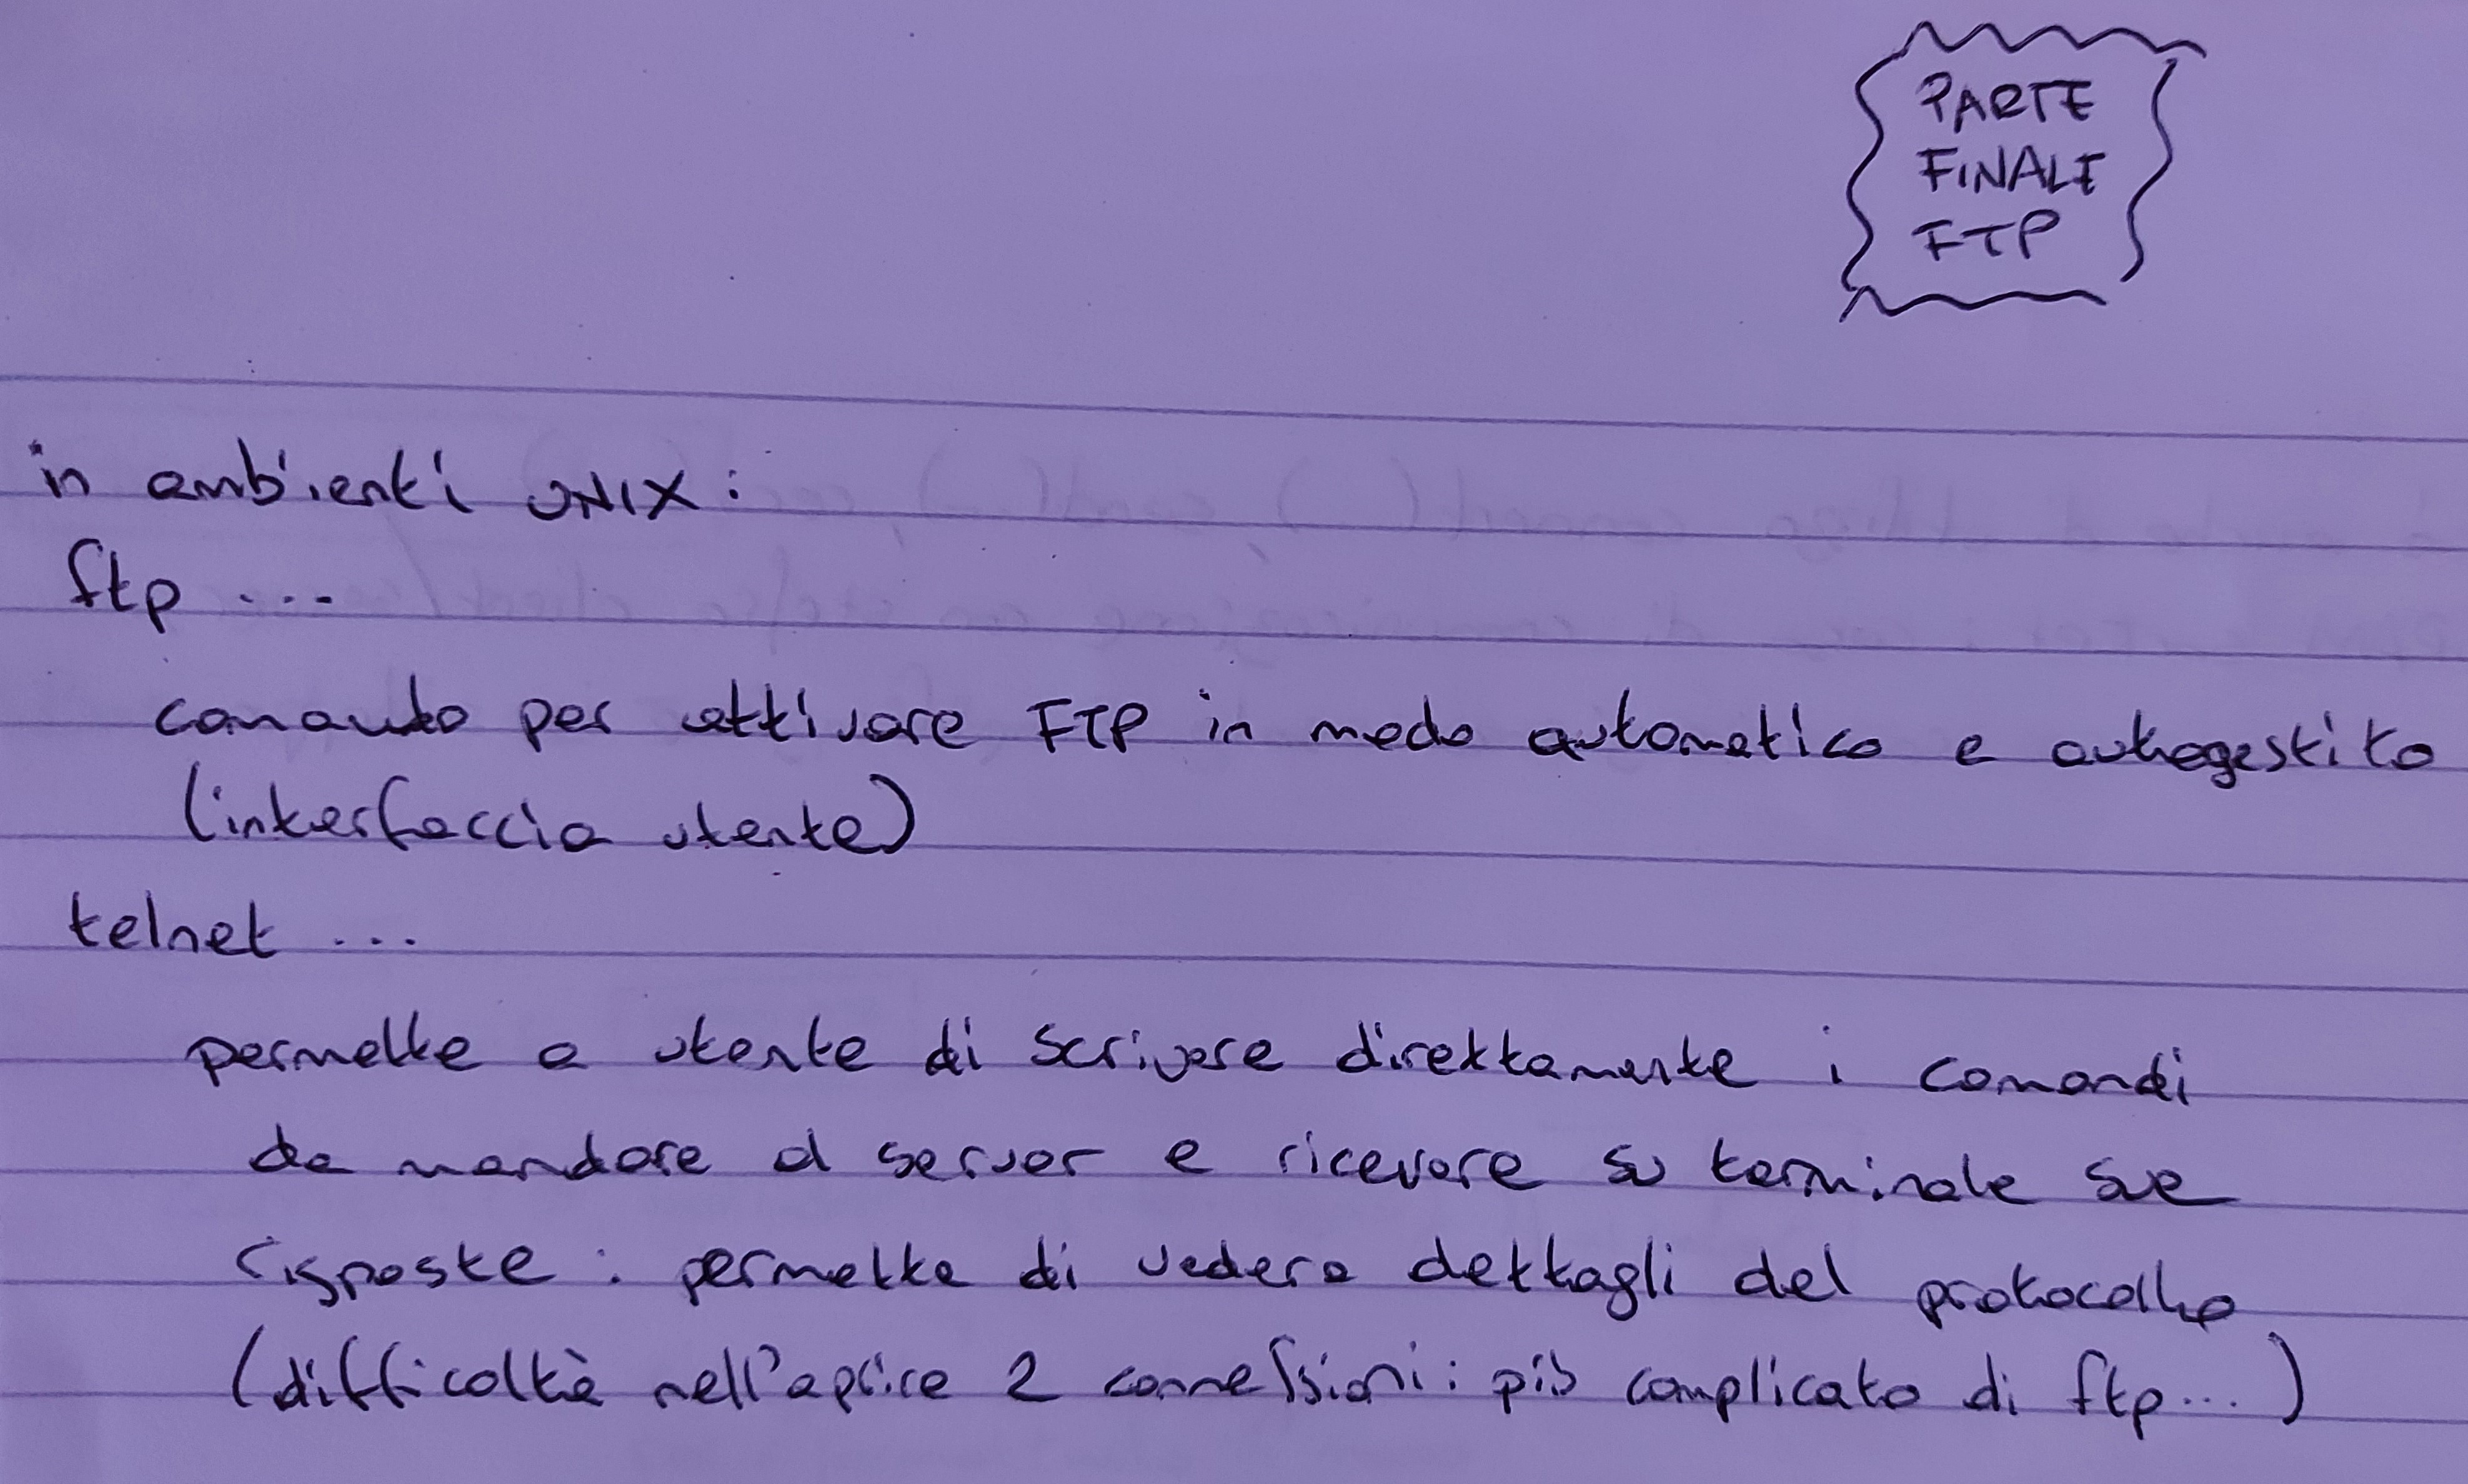 PARTE
FINALE
FTP
in ambienti UNIX:
ftp ...
comando per attivare FTP in modo automatico e autogestito
(interfaccia utente)
telnet ...
permette a utente di scrivere direttamente i comandi
da mandare al server e ricevere su terminale sue
risposte: permette di vedere dettagli del protocollo
(difficoltà nell'aprire 2 connessioni: più complicato di ftp...)